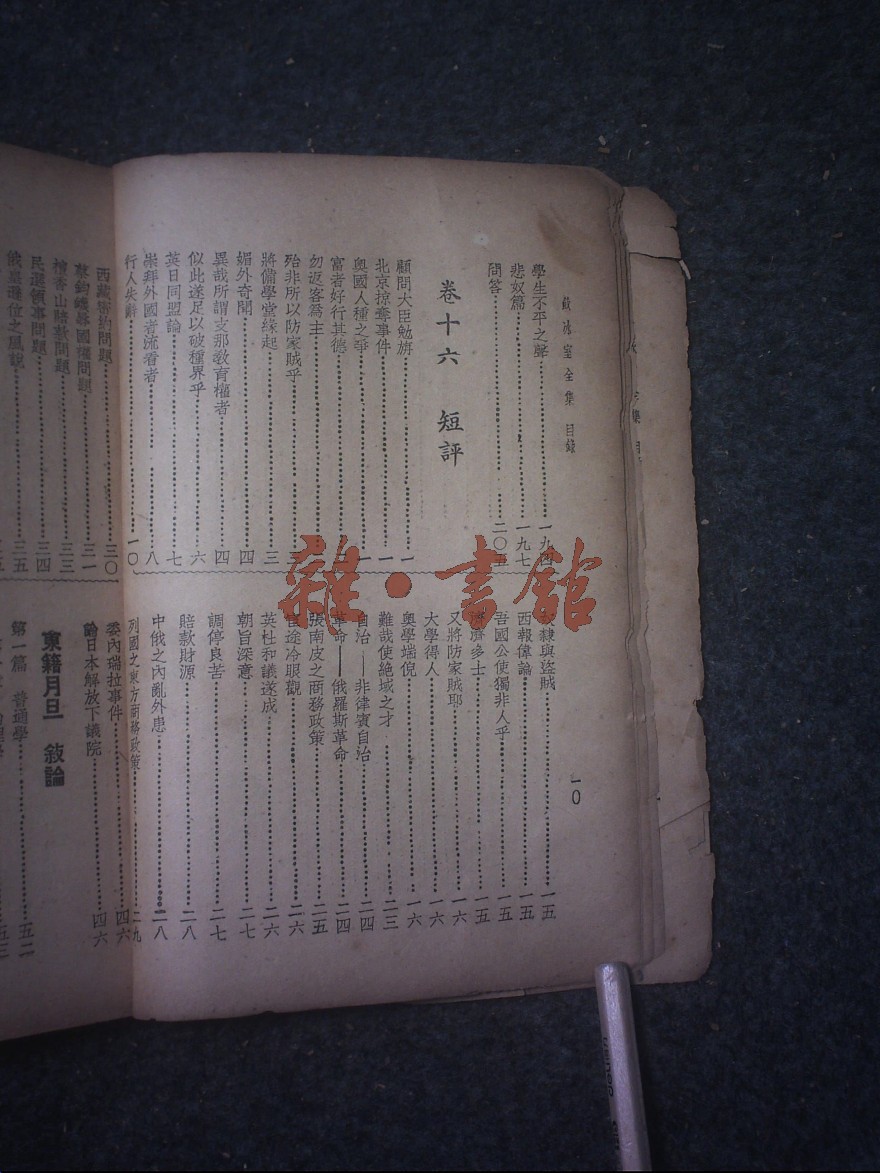 飲冰室全集 目錄
一〇
學生不平之聲 一九四
悲奴篇 一九七
問答
卷十六 短評
顧問大臣勉旃 一
北京掠奪事件 一
奧國人種之爭 一
富者好行其德
勿返客為主
殆非所以防家賊乎
將備學堂緣起 三
媚外奇聞 四
異哉所謂支那教育權者 四
似此遂足以破種界乎 六
英日同盟論 七
崇拜外國者流看者 八
行人失辭 一〇
奴隸與盜賊 一五
西報偉論 一五
吾國公使獨非人乎 一五
濟濟多士 一五
又將防家賊耶 一六
大學得人 一六
奧學端倪 一六
難哉使絕域之才 二三
自治——非律賓自治 二四
革命——俄羅斯革命 二四
張南皮之商務政策 二五
宦途冷眼觀 二六
英杜和議遂成 二六
朝旨深意 二七
調停良苦 二七
賠款財源 二八
中俄之內亂外患 二八
列國之東方商務政策 二九
西藏密約問題 三〇
蔡鈞蔑辱國權問題 三一
檀香山賠款問題 三三
民選領事問題 三四
俄皇遜位之風說 三五
委內瑞拉事件 四六
論日本解放下議院 四六
東籍月旦 敍論
第一篇 普通學 五二
雜·書館